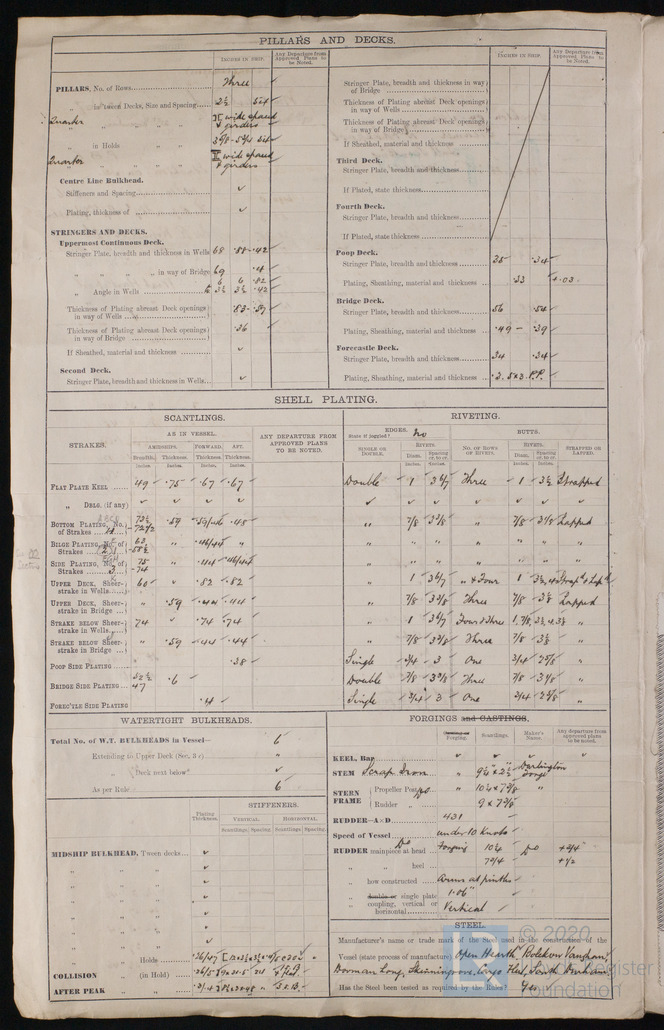 PILLARS AND DECKS.
INCHES IN SHIP.
Any Departure from Approved Plans to be Noted.
PILLARS, No. of Rows Three
„ in 'tween Decks, Size and Spacing 2½ 54
Quarter „ „ „ wide spaced & girders
„ in Holds „ „
Quarter „ „ „ wide spaced & girders
Centre Line Bulkhead.
Stiffeners and Spacing ✓
Plating, thickness of ✓
STRINGERS AND DECKS.
Uppermost Continuous Deck.
Stringer Plate, breadth and thickness in Wells 68 .88-.42
„ „ „ „ in way of Bridge 69
„ Angle in Wells
Thickness of Plating abreast Deck openings in way of Wells
Thickness of Plating abreast Deck openings in way of Bridge .36
If Sheathed, material and thickness ✓
Second Deck.
Stringer Plate, breadth and thickness in Wells ✓
INCHES IN SHIP.
Any Departure from Approved Plans to be Noted.
Stringer Plate, breadth and thickness in way of Bridge
Thickness of Plating abreast Deck openings in way of Wells
Thickness of Plating abreast Deck openings in way of Bridge
If Sheathed, material and thickness
Third Deck.
Stringer Plate, breadth and thickness
If Plated, state thickness
Fourth Deck.
Stringer Plate, breadth and thickness
If Plated, state thickness
Poop Deck.
Stringer Plate, breadth and thickness 35 .34
Plating, Sheathing, material and thickness .33 +.03
Bridge Deck.
Stringer Plate, breadth and thickness 56 .54
Plating, Sheathing, material and thickness .49 - .39
Forecastle Deck.
Stringer Plate, breadth and thickness 34 .34
Plating, Sheathing, material and thickness P.P.
SHELL PLATING.
SCANTLINGS.
RIVETING.
STRAKES.
AS IN VESSEL.
ANY DEPARTURE FROM APPROVED PLANS TO BE NOTED.
EDGES. State if joggled? No
BUTTS.
AMIDSHIPS. FORWARD. AFT.
Breadth. Thickness. Thickness. Thickness.
SINGLE OR DOUBLE.
RIVETS.
Diam. Spacing cr. to cr.
NO. OF ROWS OF RIVETS.
RIVETS.
Diam. Spacing cr. to cr.
STRAPPED OR LAPPED.
Inches. Inches. Inches. Inches. Inches. Inches. Inches. Inches.
FLAT PLATE KEEL 49 .75 .67 .67 Double 1 3 6/7 Three 1 3½ Strapped
„ DBLG. (if any) ✓ ✓ ✓ ✓ ✓ ✓ ✓ ✓ ✓ ✓ ✓
BOTTOM PLATING, No. of Strakes 4 .59 .48 „ 7/8 3 3/8 „ 7/8 3 1/8 Lapped
BILGE PLATING, No. of Strakes 63 „ .46/44 „ „ „ „ „ „ „ „
SIDE PLATING, No. of Strakes 3 75 74 „ .44 .46/44 „ „ „ „ „ „ „
UPPER DECK, Sheer-strake in Wells 60 „ .82 .82 „ 1 3 6/7 „ & Four 1
UPPER DECK, Sheer-strake in Bridge „ .59 .44 .44 „ 7/8 3 3/8 Three 7/8 3 1/8 Lapped
STRAKE BELOW Sheer-strake in Wells 74 ✓ .74 .74 „ 1 3 6/7 Four & Three
STRAKE BELOW Sheer-strake in Bridge „ .59 .44 .44 „ 7/8 3 3/8 Three 7/8 3 1/8 „
POOP SIDE PLATING .38 Single 3/4 3 One 3/4 2 5/8 „
BRIDGE SIDE PLATING 52½ 47 .6 Double 7/8 3 3/8 Three 7/8 3 1/8 „
FOREC'TLE SIDE PLATING .4 Single 3/4 3 One 3/4 2 5/8 „
WATERTIGHT BULKHEADS.
Total No. of W.T. BULKHEADS in Vessel— 6
Extending to Upper Deck (Sec. 3 c) „
„ Deck next below ✓
As per Rule 6
Plating Thickness.
STIFFENERS.
VERTICAL. HORIZONTAL.
Scantlings. Spacing. Scantlings. Spacing.
MIDSHIP BULKHEAD, 'Tween decks ✓
„ „ „ ✓
„ „ „ ✓
„ „ „ ✓
„ „ „ ✓
„ „ „ ✓
„ „ Holds
COLLISION „ (in Hold)
AFTER PEAK „ „
FORGINGS and CASTINGS.
Forging. Scantlings. Maker's Name. Any departure from approved plans to be noted.
KEEL, Bar ✓ ✓ ✓ ✓
STEM Scrap Iron „ 9¼" x 2½ Darlington Forge
STERN FRAME
Propeller Post „ „
Rudder „
RUDDER—A x D 431
Speed of Vessel under 10 Knots
RUDDER mainpiece at head Do Forging 10¼ Do +¾"
„ „ heel +½
„ how constructed Arms at pintles
„ double or single plate 1.06"
„ coupling, vertical or horizontal Vertical
STEEL.
Manufacturer's name or trade mark of the Steel used in the construction of the
Vessel (state process of manufacture) Open Hearth, Bolckow Vaughan,
Dorman Long, Skinningrove, Cargo Fleet, South Durham,
Has the Steel been tested as required by the Rules Yes
© 2020
Lloyd's Register
Foundation
LR